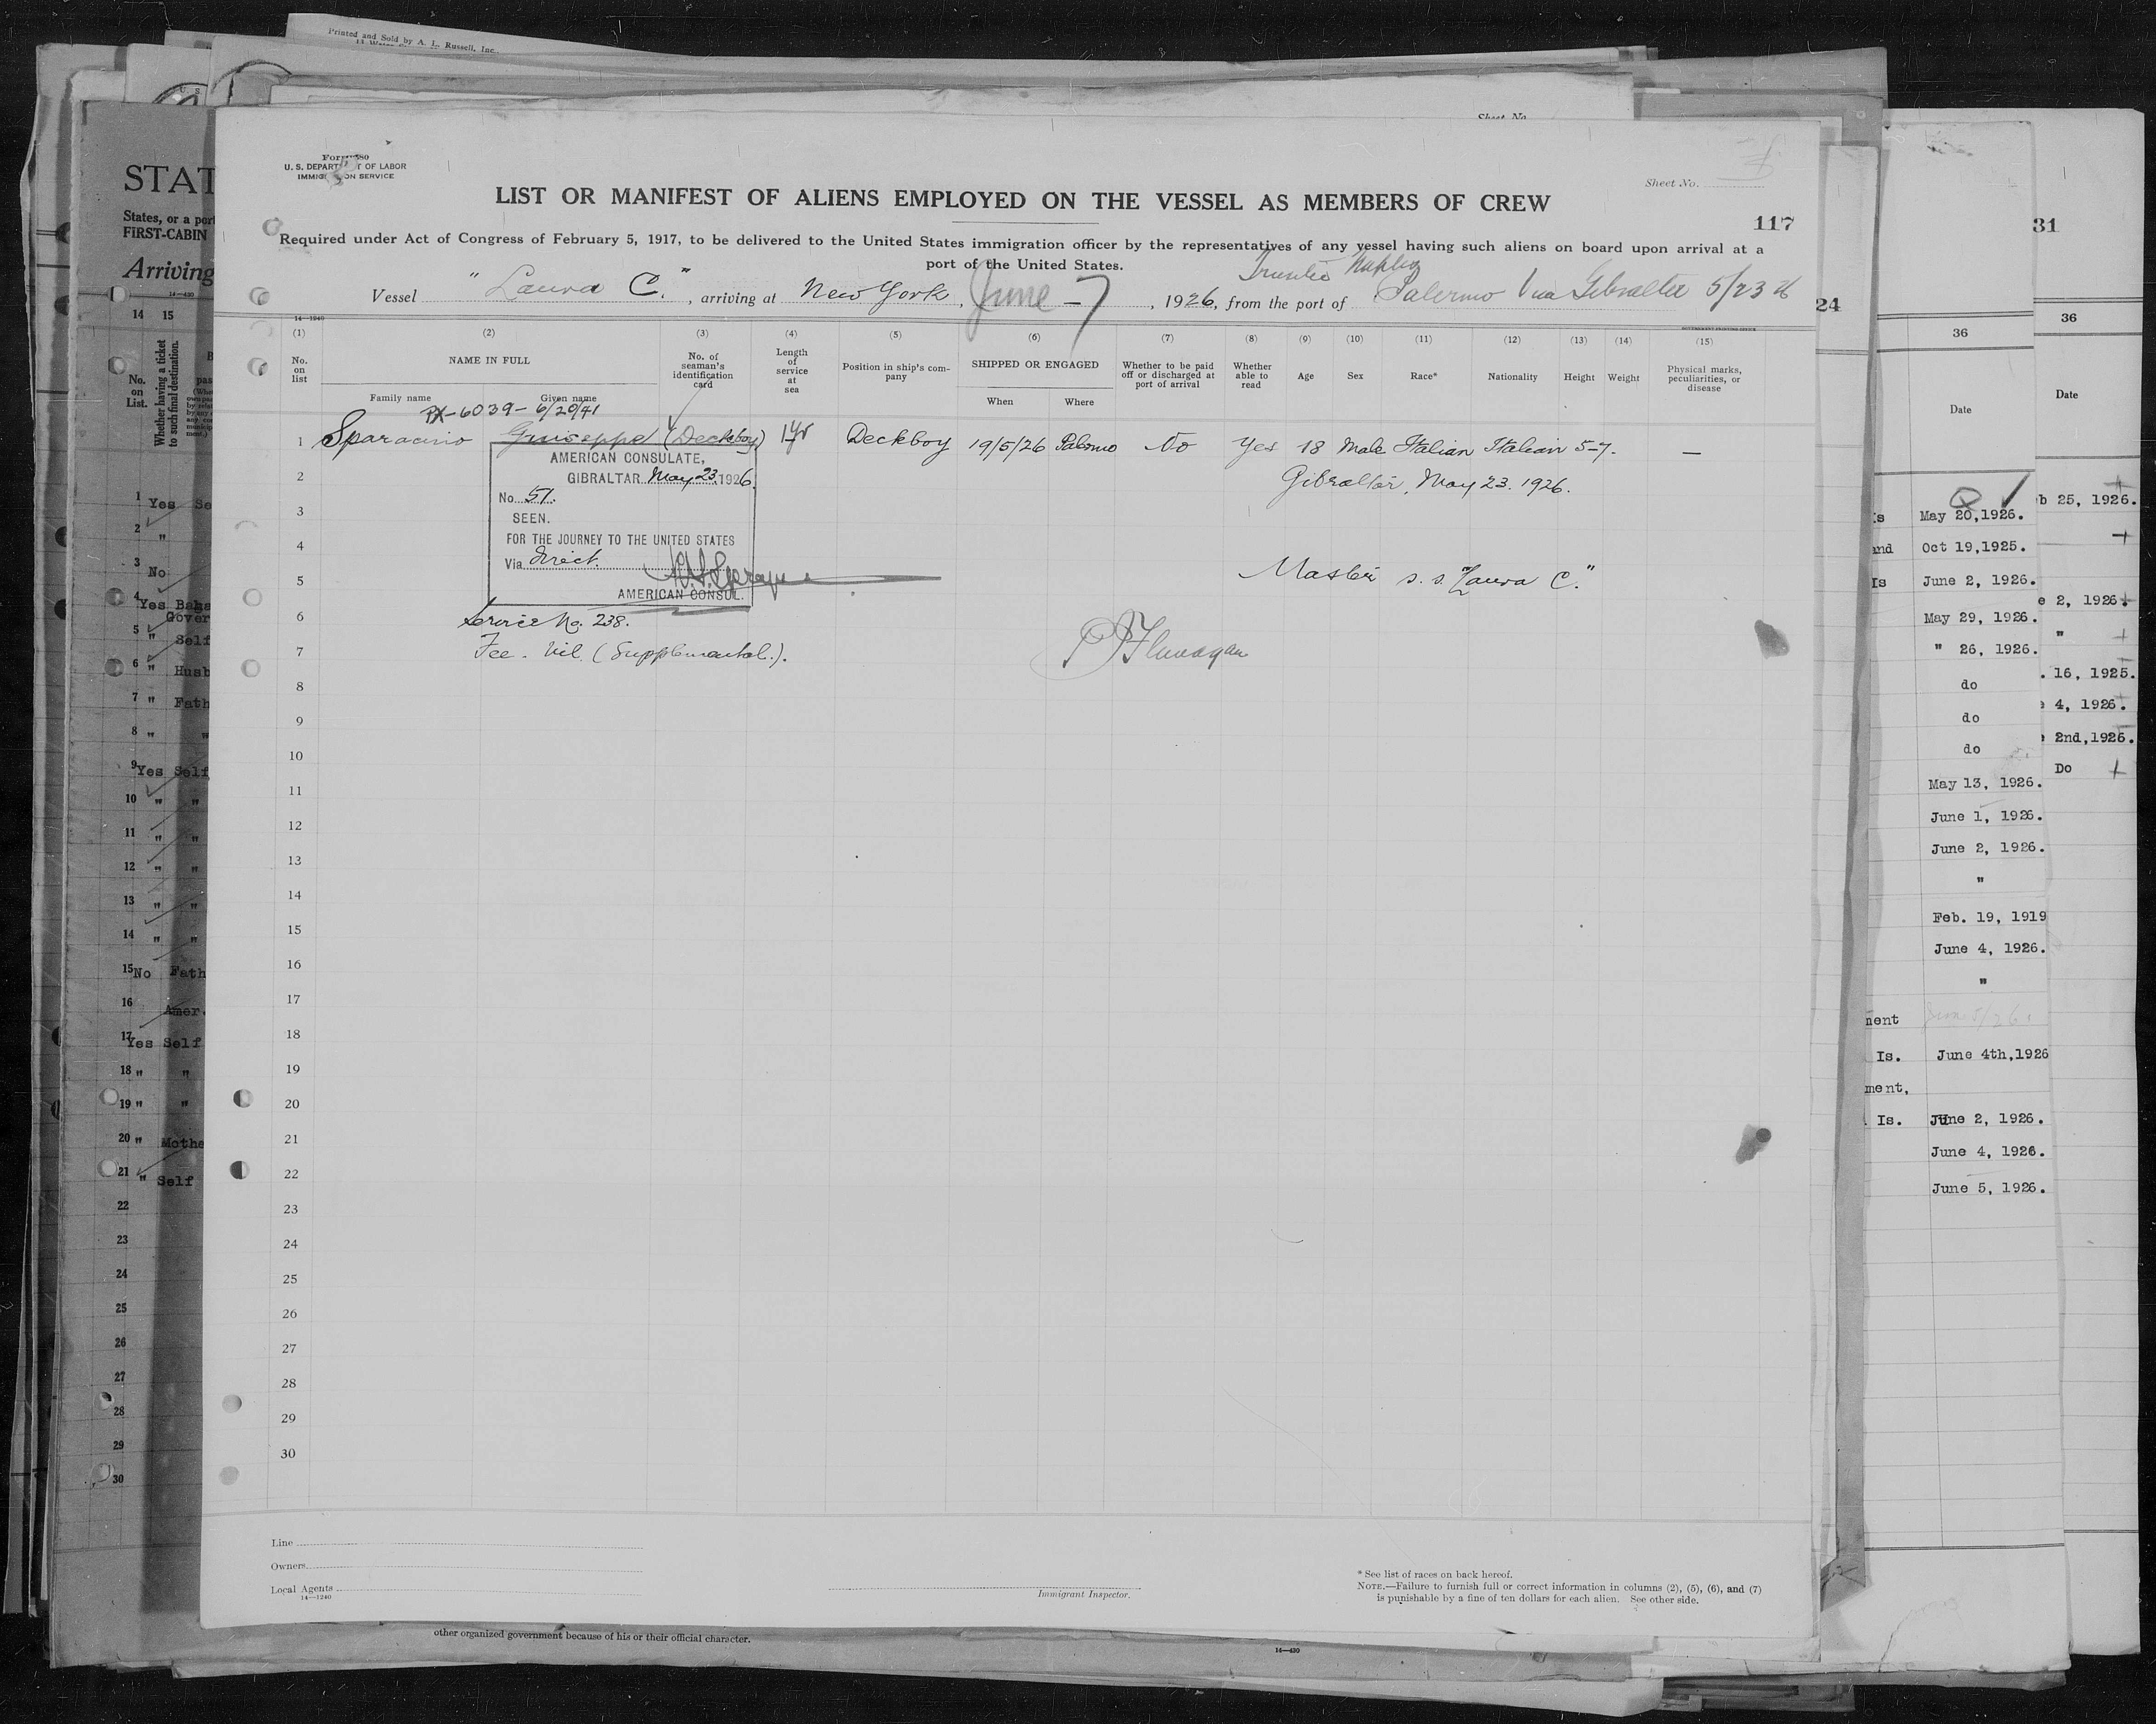 Printed and Sold by A. L. Russell, Inc.,
Sheet No.
Form 680
U. S. DEPARTMENT OF LABOR
IMMIGRATION SERVICE
Sheet No.
LIST OR MANIFEST OF ALIENS EMPLOYED ON THE VESSEL AS MEMBERS OF CREW
117
Required under Act of Congress of February 5, 1917, to be delivered to the United States immigration officer by the representatives of any vessel having such aliens on board upon arrival at a
port of the United States.
Naples
Vessel "Laura C.", arriving at New York, June - 7, 1926, from the port of Palermo Via Gibralter 5/23/26
14—1240
(1) (2) (3) (4) (5) (6) (7) (8) (9) (10) (11) (12) (13) (14) (15)
No. on list
NAME IN FULL
Family name
Given name
No. of seaman's identification card
Length of service at sea
Position in ship's company
SHIPPED OR ENGAGED
When
Where
Whether to be paid off or discharged at port of arrival
Whether able to read
Age
Sex
Race*
Nationality
Height
Weight
Physical marks, peculiarities, or disease
PX-6039-6/20/41
1 Sparacino Guiseppe (Deckboy) 1yr Deckboy 19/5/26 Palermo No Yes 18 Male Italian Italian 5-7. —
AMERICAN CONSULATE,
GIBRALTAR May 23, 1926.
Gibraltar, May 23. 1926.
2
No. 51.
3
SEEN.
4
FOR THE JOURNEY TO THE UNITED STATES
Via direct.
5
Master s.s. "Laura C."
AMERICAN CONSUL.
6
Service No. 238.
7
Fee. Nil. (Supplemental.).
Flanagan
8
9
10
11
12
13
14
15
16
17
18
19
20
21
22
23
24
25
26
27
28
29
30
Line
Owners
Local Agents
14—1240
Immigrant Inspector.
* See list of races on back hereof.
NOTE.—Failure to furnish full or correct information in columns (2), (5), (6), and (7)
is punishable by a fine of ten dollars for each alien. See other side.
other organized government because of his or their official character.
14—430
STAT
States, or a port
FIRST-CABIN
Arriving
14—430
14 15
No. on List.
Whether having a ticket to such final destination.
1 Yes Se
2 "
3 No
4 Yes
Gover
5 " Self
6 " Husb
7 " Fath
8 " "
9 Yes Self
10 " "
11 " "
12 " "
13 " "
14 " "
15 No Fath
16 Amer.
17 Yes Self
18 " "
19 " "
20 " Mothe
21 " Self
22
23
24
25
26
27
28
29
30
24
36
Date
May 20,1926.
Oct 19,1925.
June 2, 1926.
May 29, 1926.
" 26, 1926.
do
do
do
May 13, 1926.
June 1, 1926.
June 2, 1926.
"
Feb. 19, 1919
June 4, 1926.
"
ment
Is. June 4th,1926
ment,
Is. June 2, 1926.
June 4, 1926.
June 5, 1926.
31
36
Date
b 25, 1926.
e 2, 1926.
"
. 16, 1925.
e 4, 1926.
2nd,1926.
Do